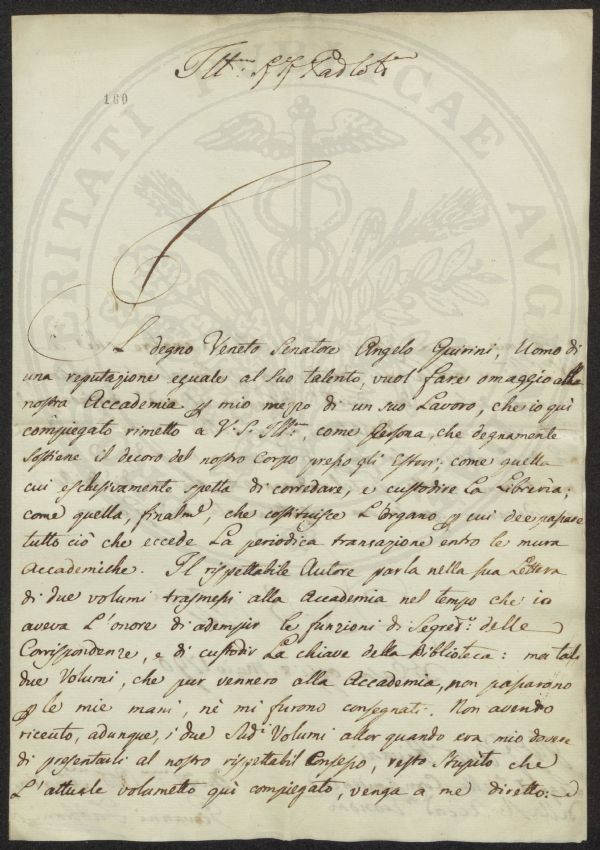 Illmo. Sig.r Padron
180
Il degno Veneto Senatore Angelo Quirini, Uomo di
una reputazione eguale al suo talento, vuol fare omaggio alla
nostra Accademia p mio mezzo di un suo Lavoro, che io quì
compiegato rimetto a V. S. Illma, come Persona, che degnamente
sostiene il decoro del nostro Corpo presso gli Esteri; come quella
cui esclusivamente spetta di corredare, e custodire La Librerìa;
come quella, finalme, che costituisce L'Organo p cui dee passare
tutto ciò che eccede La periodica transazione entro le mura
Accademiche. Il rispettabile Autore parla nella sua Lettera
di due volumi trasmessi alla Accademia nel tempo che io
aveva L'onore di adempir le funzioni di Segreo. delle
Corrispondenze, e di custodir La chiave della Biblioteca: ma tali
due Volumi, che pur vennero alla Accademia, non passarono
p le mie mani, nè mi furono consegnati. Non avendo
ricevuto, adunque, i due Sudi. Volumi allor quando era mio dovere
di presentarli al nostro rispettabil Consesso, resto stupito che
L'attuale volumetto quì compiegato, venga a me diretto: e
VERITATI PUBLICAE AUGE